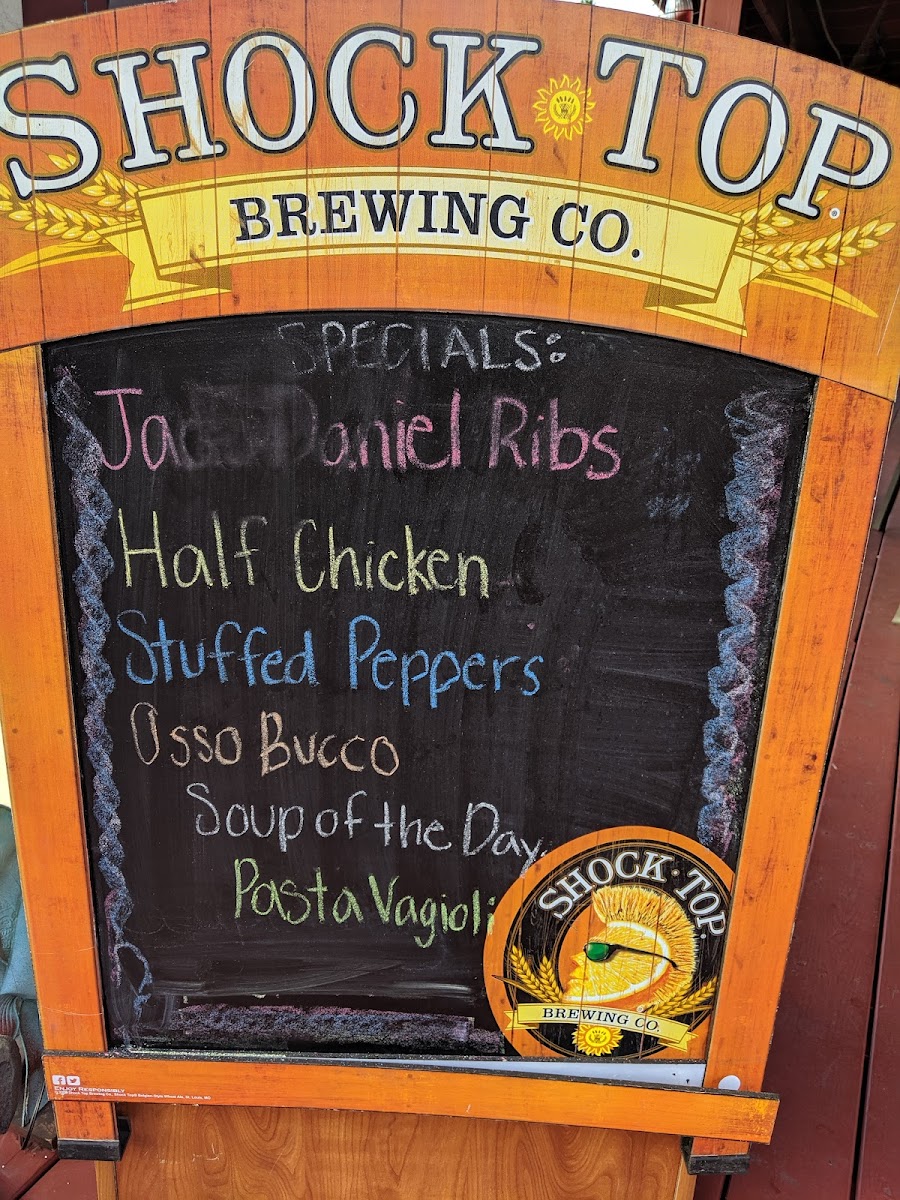 SHOCK TOP
BREWING CO.
SPECIALS:
Jack Daniel Ribs
Half Chicken
Stuffed Peppers
Osso Bucco
Soup of the Day
Pasta Vagioli
SHOCK · TOP
BREWING CO.
ENJOY RESPONSIBLY